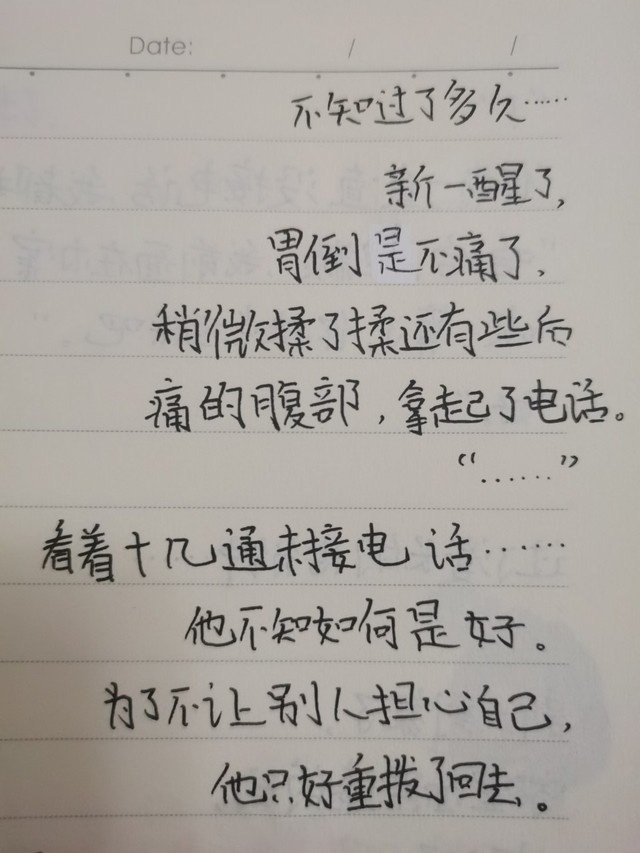 Date: / /
不知过了多久……
新一醒了,
胃倒是不痛了,
稍微揉了揉还有些后
痛的腹部,拿起了电话。
“……”
看着十几通未接电话……
他不知如何是好。
为了不让别人担心自己,
他只好重拨了回去。